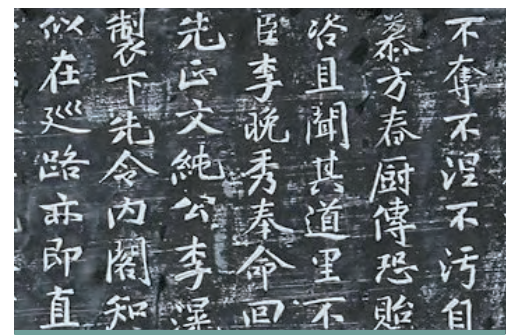 不奪不涅不污自
慕方春厨傳恐貽
咨且聞其道里不
臣李晚秀奉命回
先正文純公李滉
製下先令內閣知
似在巡路亦即直